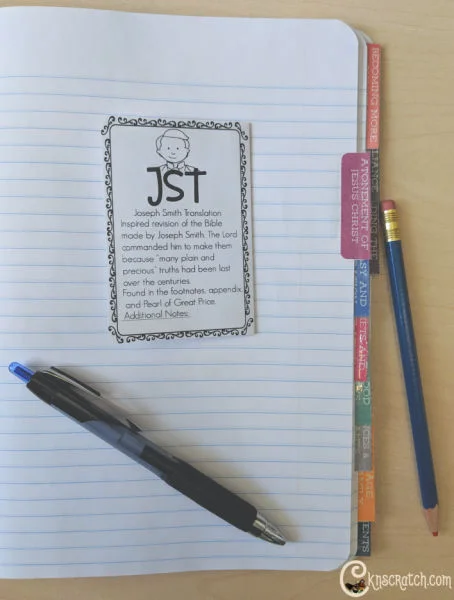 JST
Joseph Smith Translation
Inspired revision of the Bible
made by Joseph Smith. The Lord
commanded him to make them
because "many plain and
precious" truths had been lost
over the centuries.
Found in the footnotes, appendix
and Pearl of Great Price.
Additional Notes:
BECOMING MORE
ATONEMENT OF
JESUS CHRIST
knscratch.com